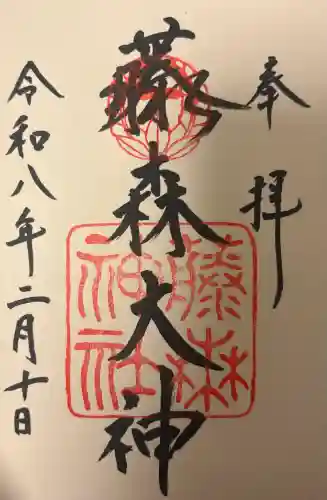 奉拝
藤森大神
藤森神社
令和八年二月十日